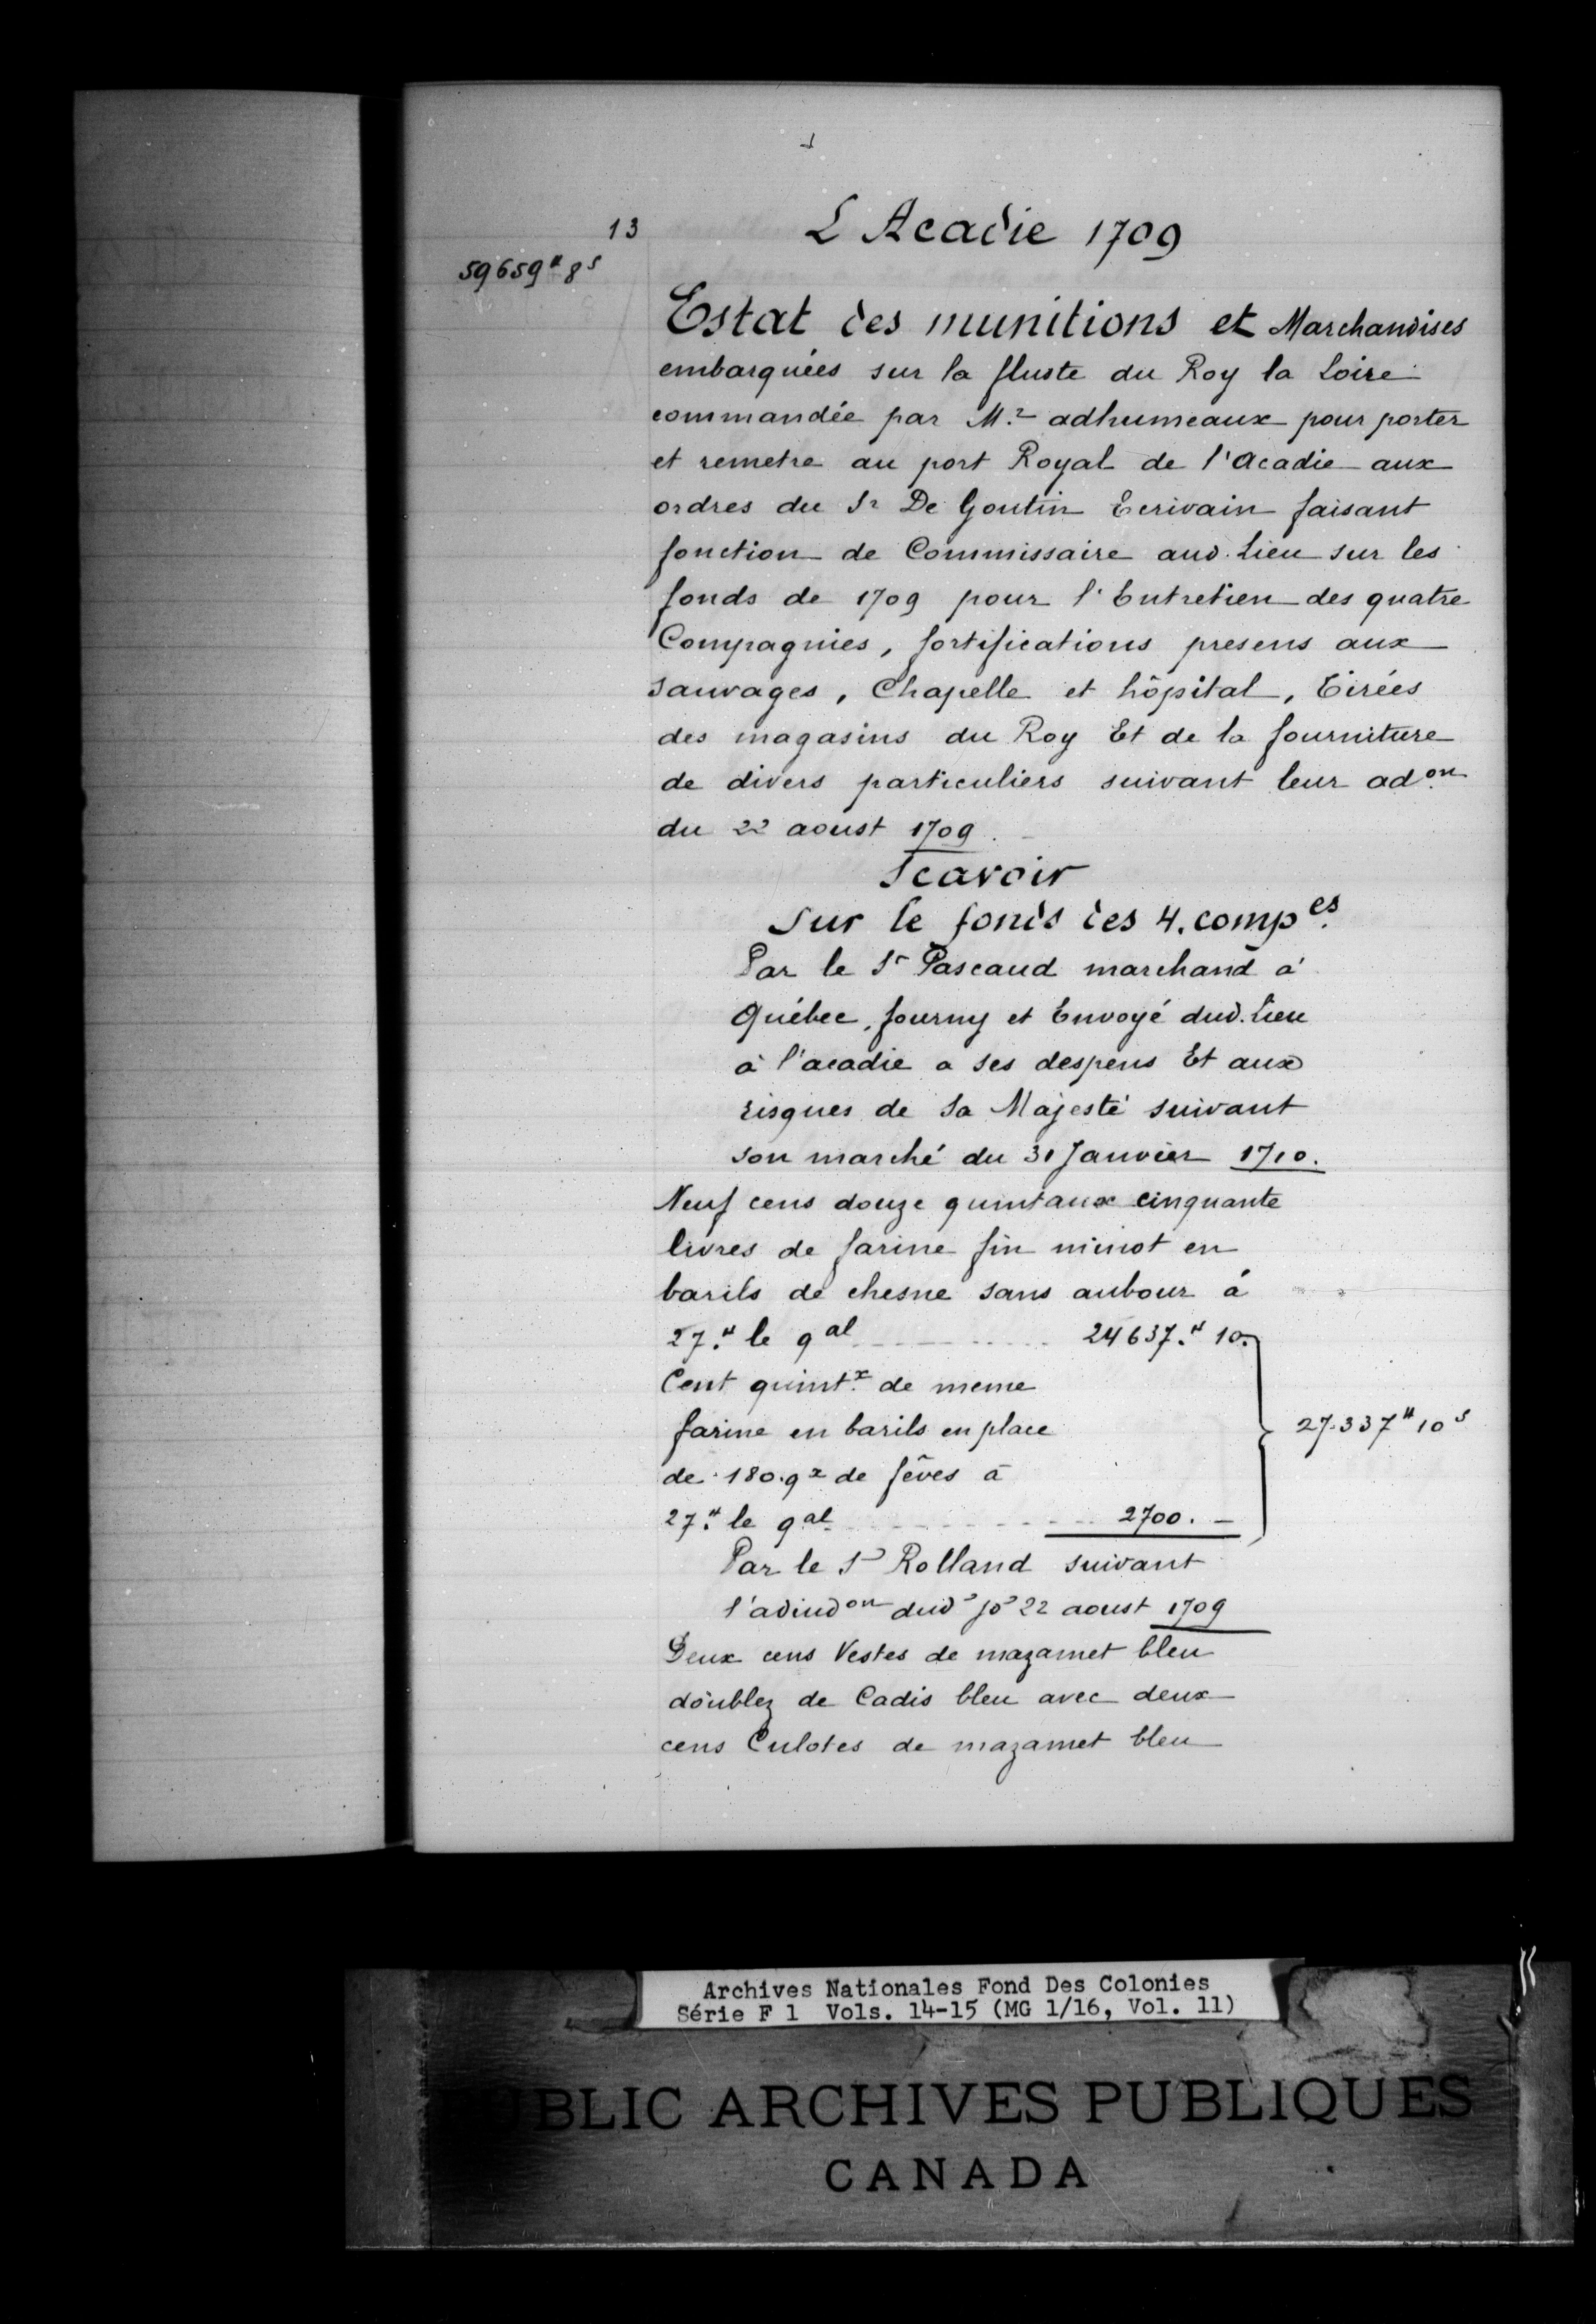 13
L Acadie 1709
59659# 8s
Estat des munitions et Marchandises
embarquées sur la fluste du Roy la Loire
commandée par Mr adhumeaux pour porter
et remetre au port Royal de l'Acadie aux
ordres du Sr De Goutin Ecrivain faisant
fonction de Commissaire aud. Lieu sur les
fonds de 1709 pour l'Entretien des quatre
Compagnies, fortifications presens aux
sauvages, Chapelle et hôpital, Tirées
des magasins du Roy Et de la fourniture
de divers particuliers suivant leur adon
du 22 aoust 1709.
Scavoir
Sur le fonds des 4. compes.
Par le Sr Pascaud marchand à
Québec, fourny et Envoyé dud. Lieu
à l'acadie a ses despens Et aux
risques de Sa Majesté suivant
son marché du 31 Janvier 1710.
Neuf cens douze quintaux cinquante
livres de farine fin minot en
barils de chesne sans aubour à
27.# le qal 24637.# 10.
Cent quintx de meme
farine en barils en place
de 180.qx de fêves à
27.# le qal 2700. —
27.337# 10s
Par le Sr Rolland suivant
l'adiudon dud jo 22 aoust 1709
Deux cens Vestes de mazamet bleu
doublez de Cadis bleu avec deux
cens Culotes de mazamet bleu
Archives Nationales Fond Des Colonies
Série F 1 Vols. 14-15 (MG 1/16, Vol. 11)
PUBLIC ARCHIVES PUBLIQUES
CANADA